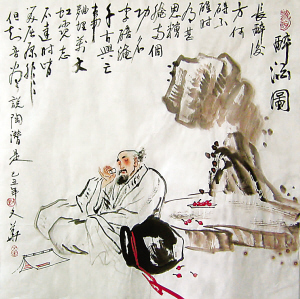 醉酒圖
長醉後
方何
碍不
醒時
有甚
思糟
腌兩個
功名
字醅渰
千古興亡
事
麯埋萬丈
虹霓志
不達時皆
笑屈原非
但知音盡說陶潛是